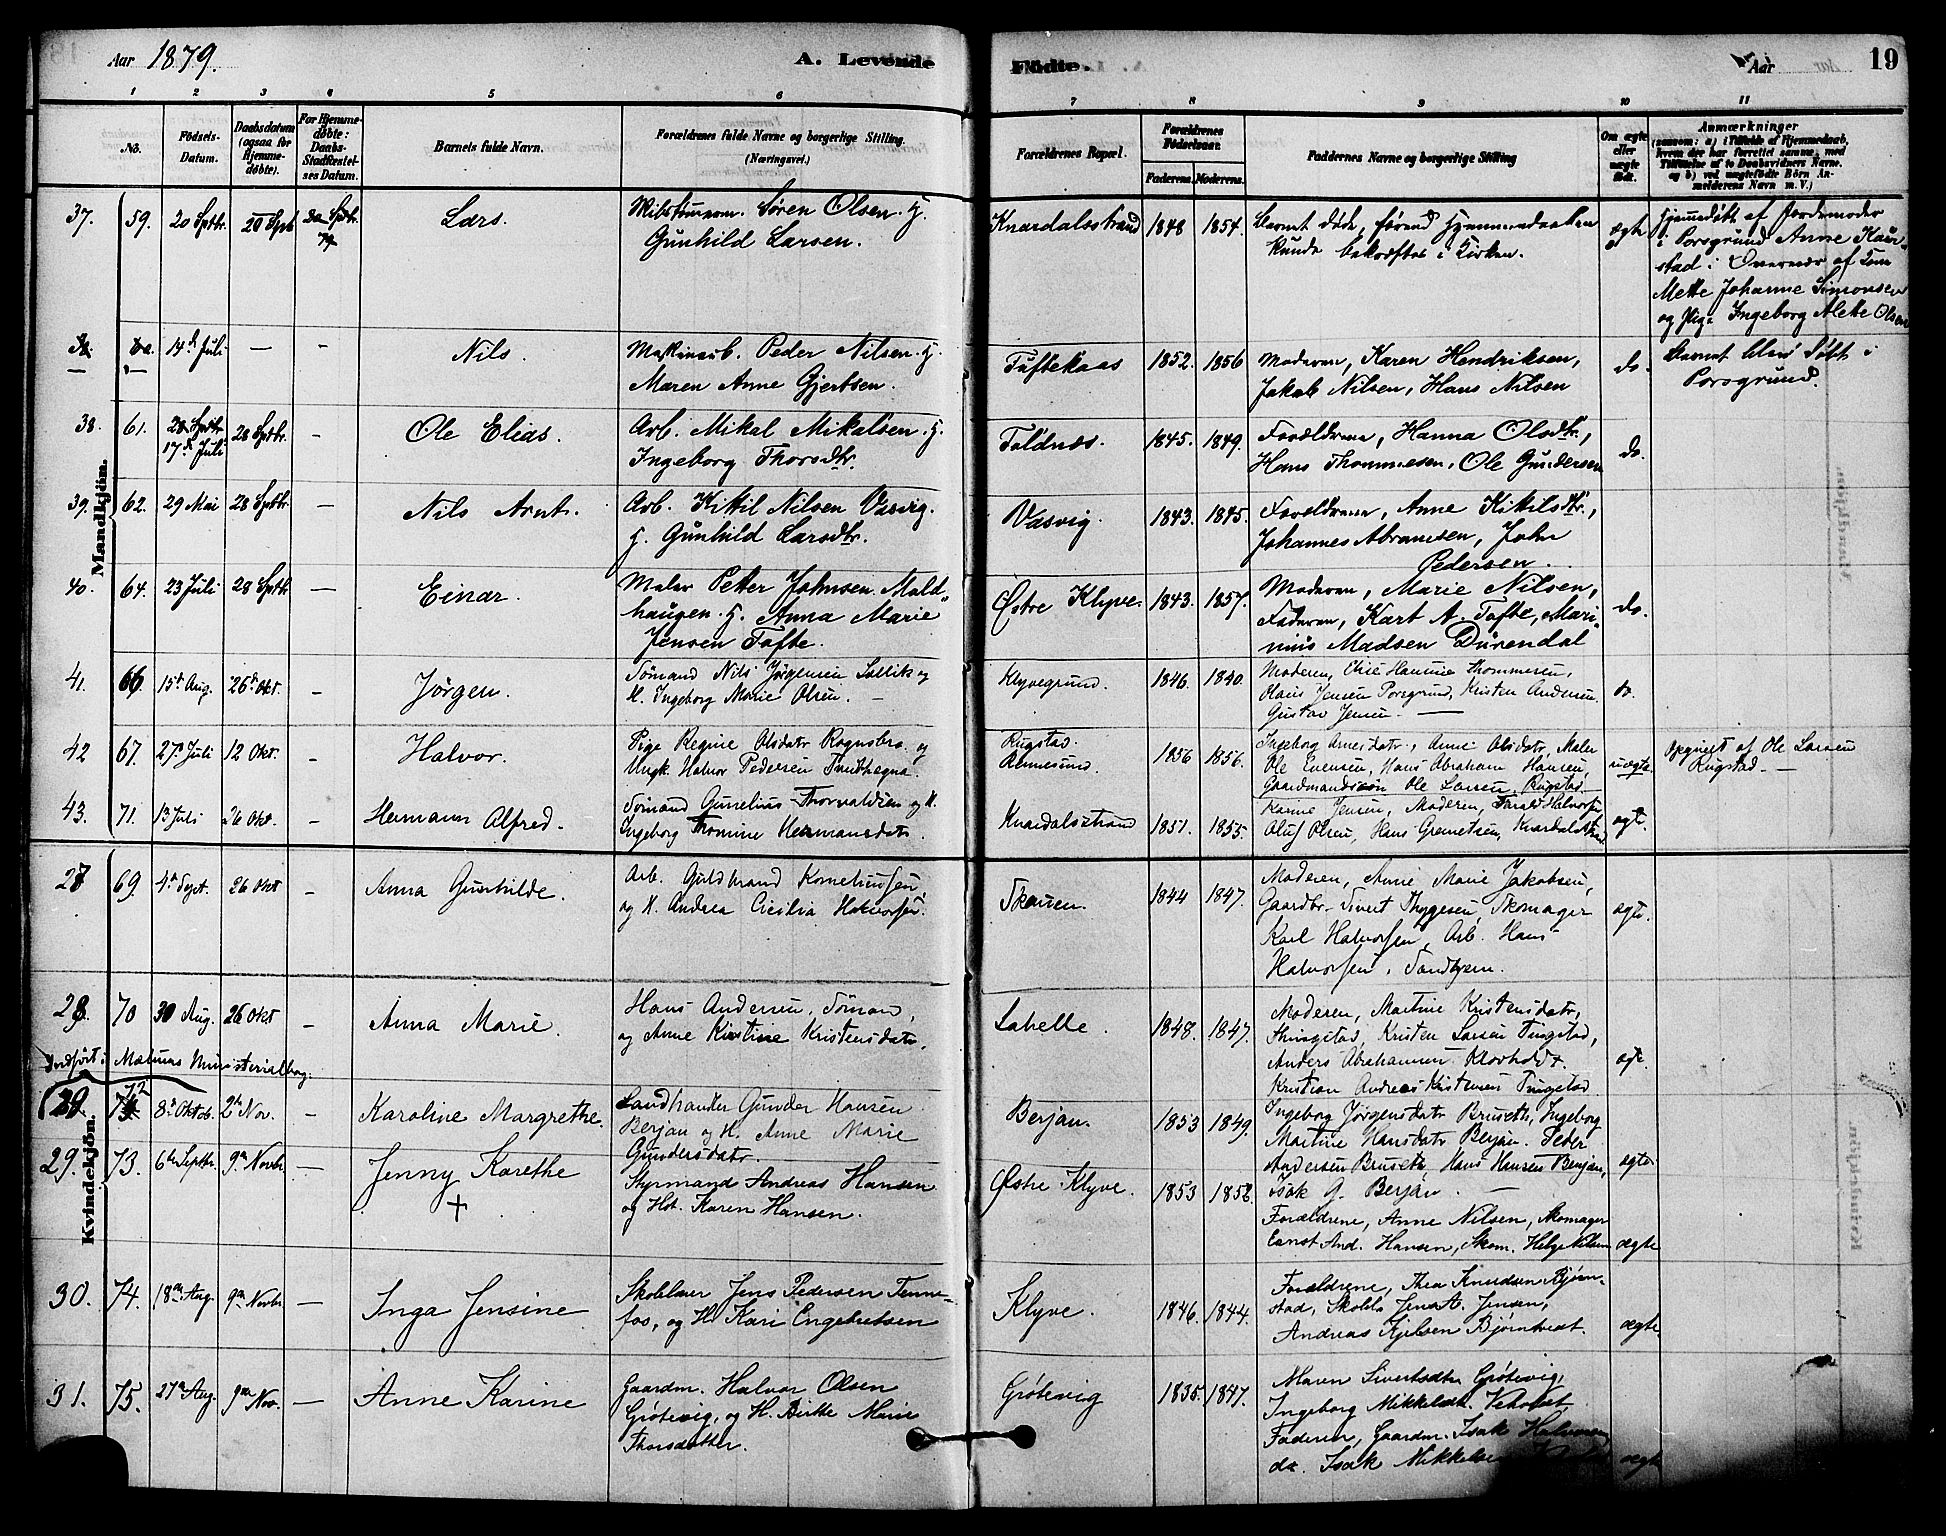 Aar 1879.
A. Levende Fødte.
Aar 19
1 2 3 4 5 6 7 8 9 10 11
No.
Fødsels-Datum.
Daabsdatum (ogsaa for Hjemmedøbte).
For Hjemmedøbte: Daabs-Stadfæstelses Datum.
Barnets fulde Navn.
Forældrenes fulde Navne og borgerlige Stilling.
(Næringsvei.)
Forældrenes Bopæl.
Forældrenes Fødselsaar.
Faderens. Moderens.
Faddernes Navne og borgerlige Stilling
Om ægte eller uægte født.
Anmærkninger
Mandkjøn.
37. 59. 20 Septbr. 20 Sptb
Lars.
Søren Olsen. H.
Gunhild Larsen.
Knardalsstrand 1848 1854.
Barnet døde, førend Hjemmedaaben
kunde bekræftes i Kirken.
ægte
Hjemmedøbt af Jordemoder
i Porsgrund Anne
Mette Johanne Simonsen
og Pige Ingeborg Alette Olsen
14de Juli — -
Nils.
Peder Nilsen. H.
Maren Anne Gjertsen.
Tuftekaas 1852. 1856
Moderen, Karen Hendriksen,
Jakob Nilsen, Hans Nilsen
do.
Barnet blev døbt i
Porsgrund.
38. 61. 17de Juli 28 Sptbr. -
Ole Elias.
Arb. Mikal Mikalsen. H.
Ingeborg Thorsdtr.
Toldnæs. 1845. 1849.
Forældrene, Hanna Olsdtr.,
Hans Thommesen, Ole Gundersen
do.
39. 62. 29 Mai 28 Sptbr. —
Nils Arnt.
Arb. Kittil Nilsen Vasvig.
H. Gunhild Larsdtr.
Vasvig. 1843. 1845.
Forældrene, Anne Kittilsdtr.,
Johannes Abramsen, John
Pedersen.
40. 64. 23 Juli 28 Sptbr —
Einar.
Maler Petter Johnsen Mold-
haugen. H. Anna Marie
Jensen Tofte.
Østre Klyve. 1843. 1857.
Moderen, Marie Nilsen,
Faderen, Kart A. Tofte, Mari-
nius Madsen Dürendal
do.
41. 66. 15de Aug. 26de Okt. -
Jørgen.
Sømand Nils Jørgensen
H. Ingeborg Marie Olsen. —
Klyvegrund. 1846. 1840.
Moderen, Elise Hannie Thommesen,
Olaus Jensen Porsgrund, Kristen Andersen
Gustav Jensen. —
do.
42 67. 27de Juli 12 Okt. -
Halvor.
Pige Regine Olsdatr Rognsbro. og
Ungk. Halvor Pedersen
Rugstad. 1856 1856.
Ingeborg Arnesdatr., Anne Olsdatr, Maler
Ole Evensen, Hans Abraham Hansen,
Gaardmandssøn Ole Larsen, Rugstad.
uægte.
Opgivet af Ole Larsen
Rugstad. —
43. 71. 13 Juli 26 Okt. -
Hermann Alfred.
Sømand Gunelius Thorvaldsen og H.
Ingeborg Thomine Hermansdatr.
Knardalsstrand 1851. 1855.
Karine Jensen, Moderen,
Oluf Olsen, Hans
ægte.
Kvindekjøn.
27 69. 4de Sept. 26 Okt -
Anna Gunhilde.
Arb. Guldbrand Korneliussen,
og H. Andrea Cicilia Halvorsen.
Skauen. 1844 1847.
Moderen, Anne Marie Jakobsen,
Gaardbr. Sivert Thygesen, Skomager
Karl Halvorsen, Arb. Hans
Halvorsen,
ægte.
28. 70 30 Aug. 26 Okt -
Anna Marie.
Hans Andersen, Sømand,
og Anne Kirstine Kristensdatr.
Labelle. 1848. 1847.
Moderen, Martine Kristensdatr,
Kristen Larsen
Anders Abrahamsen Klovholdt
Kristian Andreas Kristensen
ægte.
Indført i Melums Ministerialbog.
29 72 8de Oktob. 2den Nov. -
Karoline Margrethe.
Landhandler Gunder Hansen
Berjan og H. Anne Marie
Gundersdatr.
Berjan. 1853 1849.
Ingeborg Jørgensdatr Bruseth, Ingeborg
Martine Hansdatr Berjan. Peder
Andersen Bruseth, Hans Hansen Berjan,
Isak G. Berjan. —
ægte.
29. 73. 6te Septbr. 9de Novbr —
Jenny Karethe
+
Styrmand Andreas Hansen
og Hst. Karen Hansen.
Østre Klyve. 1853 1852.
Forældrene, Anne Nilsen, Skomager
Ernst And. Hansen, Skom. Helge Nilsen
ægte
30. 74. 18de Aug. 9de Novbr —
Inga Jensine
Skolelærer Jens Pedersen Tenne-
fos, og H. Kari Engebretsen
Klyve. 1846. 1844.
Forældrene, Thea Knudsen Bjørn-
stad, Skolel. Jens A. Jensen,
Andreas Kjelsen Bjørntvedt.
ægte
31. 75. 27de Aug. 9de Nov. —
Anne Karine
Gaardm. Halvor Olsen
Grötevig, og H. Birthe Marie
Thorsdatter.
Grötevig 1835. 1847.
Maren Sivertsdtr Grötevig,
Ingeborg Mikkelsdtr.
Faderen, Gaardm. Isak Halvorsen
do. Isak Mikkelsen
ægte